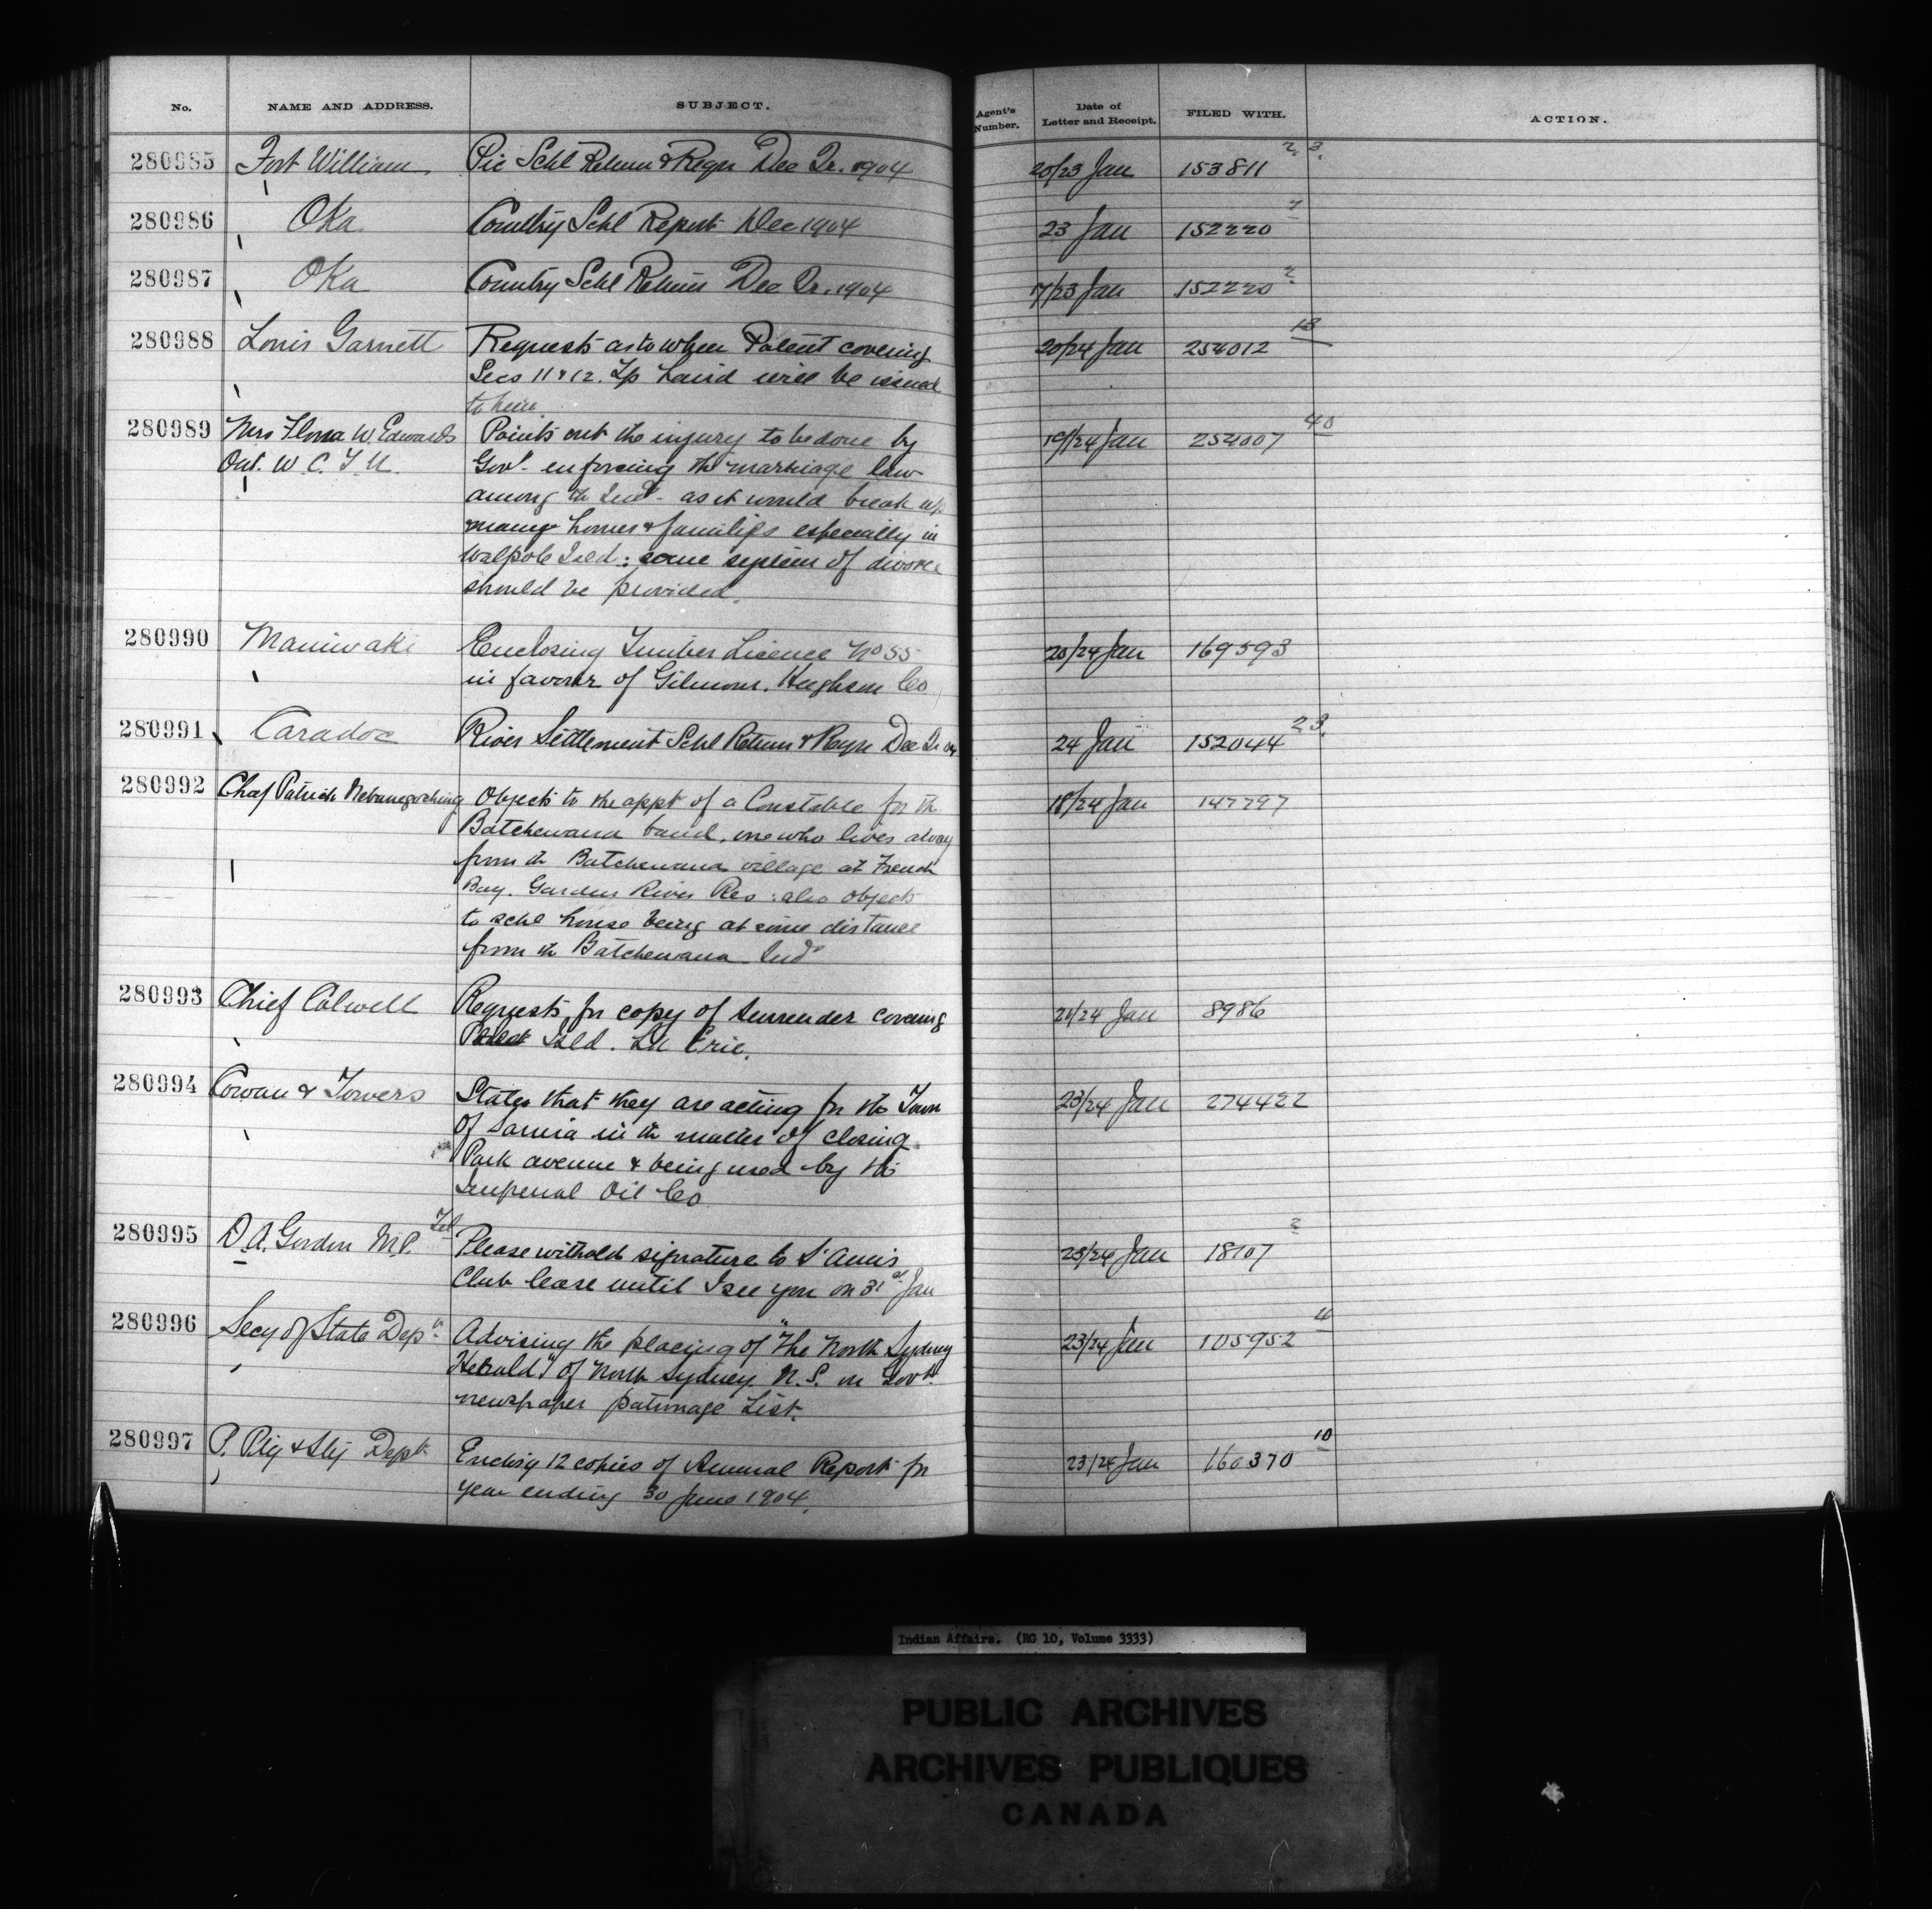 No. NAME AND ADDRESS. SUBJECT. Agent's Number. Date of Letter and Receipt. FILED WITH. ACTION.
280985 Fort William. Pic Schl Return & Regr Dec Qr. 1904 20/23 Jan 153811 2, 3.
280986 Oka Country Schl Report Dec 1904 23 Jan 152220
280987 Oka Country Schl Return Dec Qr. 1904 17/23 Jan 152220 2
280988 Louis Garnett Requests as to when Patent covering 20/24 Jan 254012 13
Secs 11 & 12. Tp Laird will be issued
to him
280989 Mrs Flora W. Edwards Points out the injury to be done by 19/24 Jan 254007 40
Ont. W. C. T. U. Govt. enforcing the marriage law
among the Inds - as it would break up
many homes & families especially in
Walpole Isld: some system of divorce
should be provided.
280990 Maniwaki Enclosing Timber Licence No 55 20/24 Jan 169593
in favour of Gilmour, Hughson Co
280991 Caradoc River Settlement Schl Return & Regr Dec Qr 04 24 Jan 152044 2, 3.
280992 Patrick Objects to the appt of a Constable for th 18/24 Jan 147797
Batchewana band, one who lives away
from th Batchewana village at French
Bay. Garden River Res: also objects
to schl house being at some distance
from th Batchewana Inds
280993 Chief Colwell Requests for copy of surrender covering 21/24 Jan 8986
Isld. Lk Erie.
280994 Cowan & Towers States that they are acting for the Town 23/24 Jan 274422
of Sarnia in th matter of closing
Park avenue & being used by the
Imperial Oil Co
280995 D. A. Gordon M.P. Tel Please withold signature to St Annis 23/24 Jan 18107 2
Club lease until I see you on 31st Jan
280996 Secy of State Dept. Advising the placing of "The North Sydney 23/24 Jan 105952 4
Herald" of North Sydney N. S. on Govt.
newspaper patronage List.
280997 P. Ptg & Sty Dept Enclosg 12 copies of Annual Report for 23/24 Jan 160370 10
year ending 30 June 1904.
Indian Affairs. (RG 10, Volume 3333)
PUBLIC ARCHIVES
ARCHIVES PUBLIQUES
CANADA